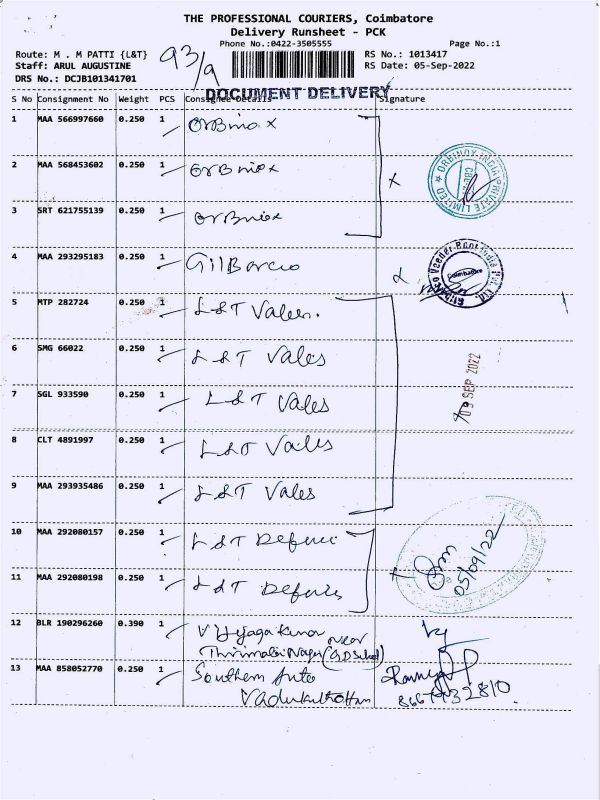 THE PROFESSIONAL COURIERS, Coimbatore
Delivery Runsheet - PCK
Phone No.:0422-3505555 Page No.:1
Route: M . M PATTI {L&T} RS No.: 1013417
Staff: ARUL AUGUSTINE RS Date: 05-Sep-2022
DRS No.: DCJB101341701
93/9
DOCUMENT DELIVERY
S No Consignment No Weight PCS Consignee Details Signature
1 MAA 566997660 0.250 1 ORBinox
2 MAA 568453602 0.250 1 ORBinox
3 SRT 621755139 0.250 1 ORBinox
ORBINOX INDIA PRIVATE LIMITED
4 MAA 293295183 0.250 1 Gilbarco
Gilbarco Veeder-Root India Pvt. Ltd.
Coimbatore
5 MTP 282724 0.250 1 L&T Valen.
6 SMG 66022 0.250 1 L&T Vales
7 SGL 933590 0.250 1 L&T Vales
SEP 2022
8 CLT 4891997 0.250 1 L&T Vales
9 MAA 293935486 0.250 1 L&T Vales
10 MAA 292080157 0.250 1 L&T Defence
11 MAA 292080198 0.250 1 L&T Defence
05/09/22
12 BLR 190296260 0.390 1 near
13 MAA 858052770 0.250 1 Southern Auto